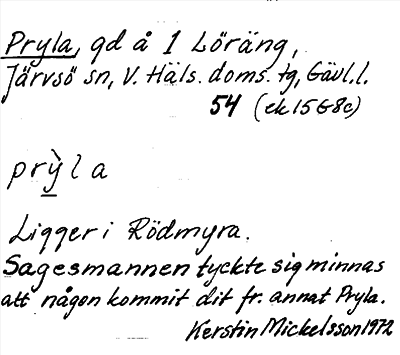 Pryla, gd å 1 Löräng,
Järvsö sn, V. Häls. doms. tg, Gävl. l.
54 (ek 15G8c)
prỳla
Ligger i Rödmyra.
Sagesmannen tyckte sig minnas
att någon kommit dit fr. annat Pryla.
Kerstin Mickelsson 1972